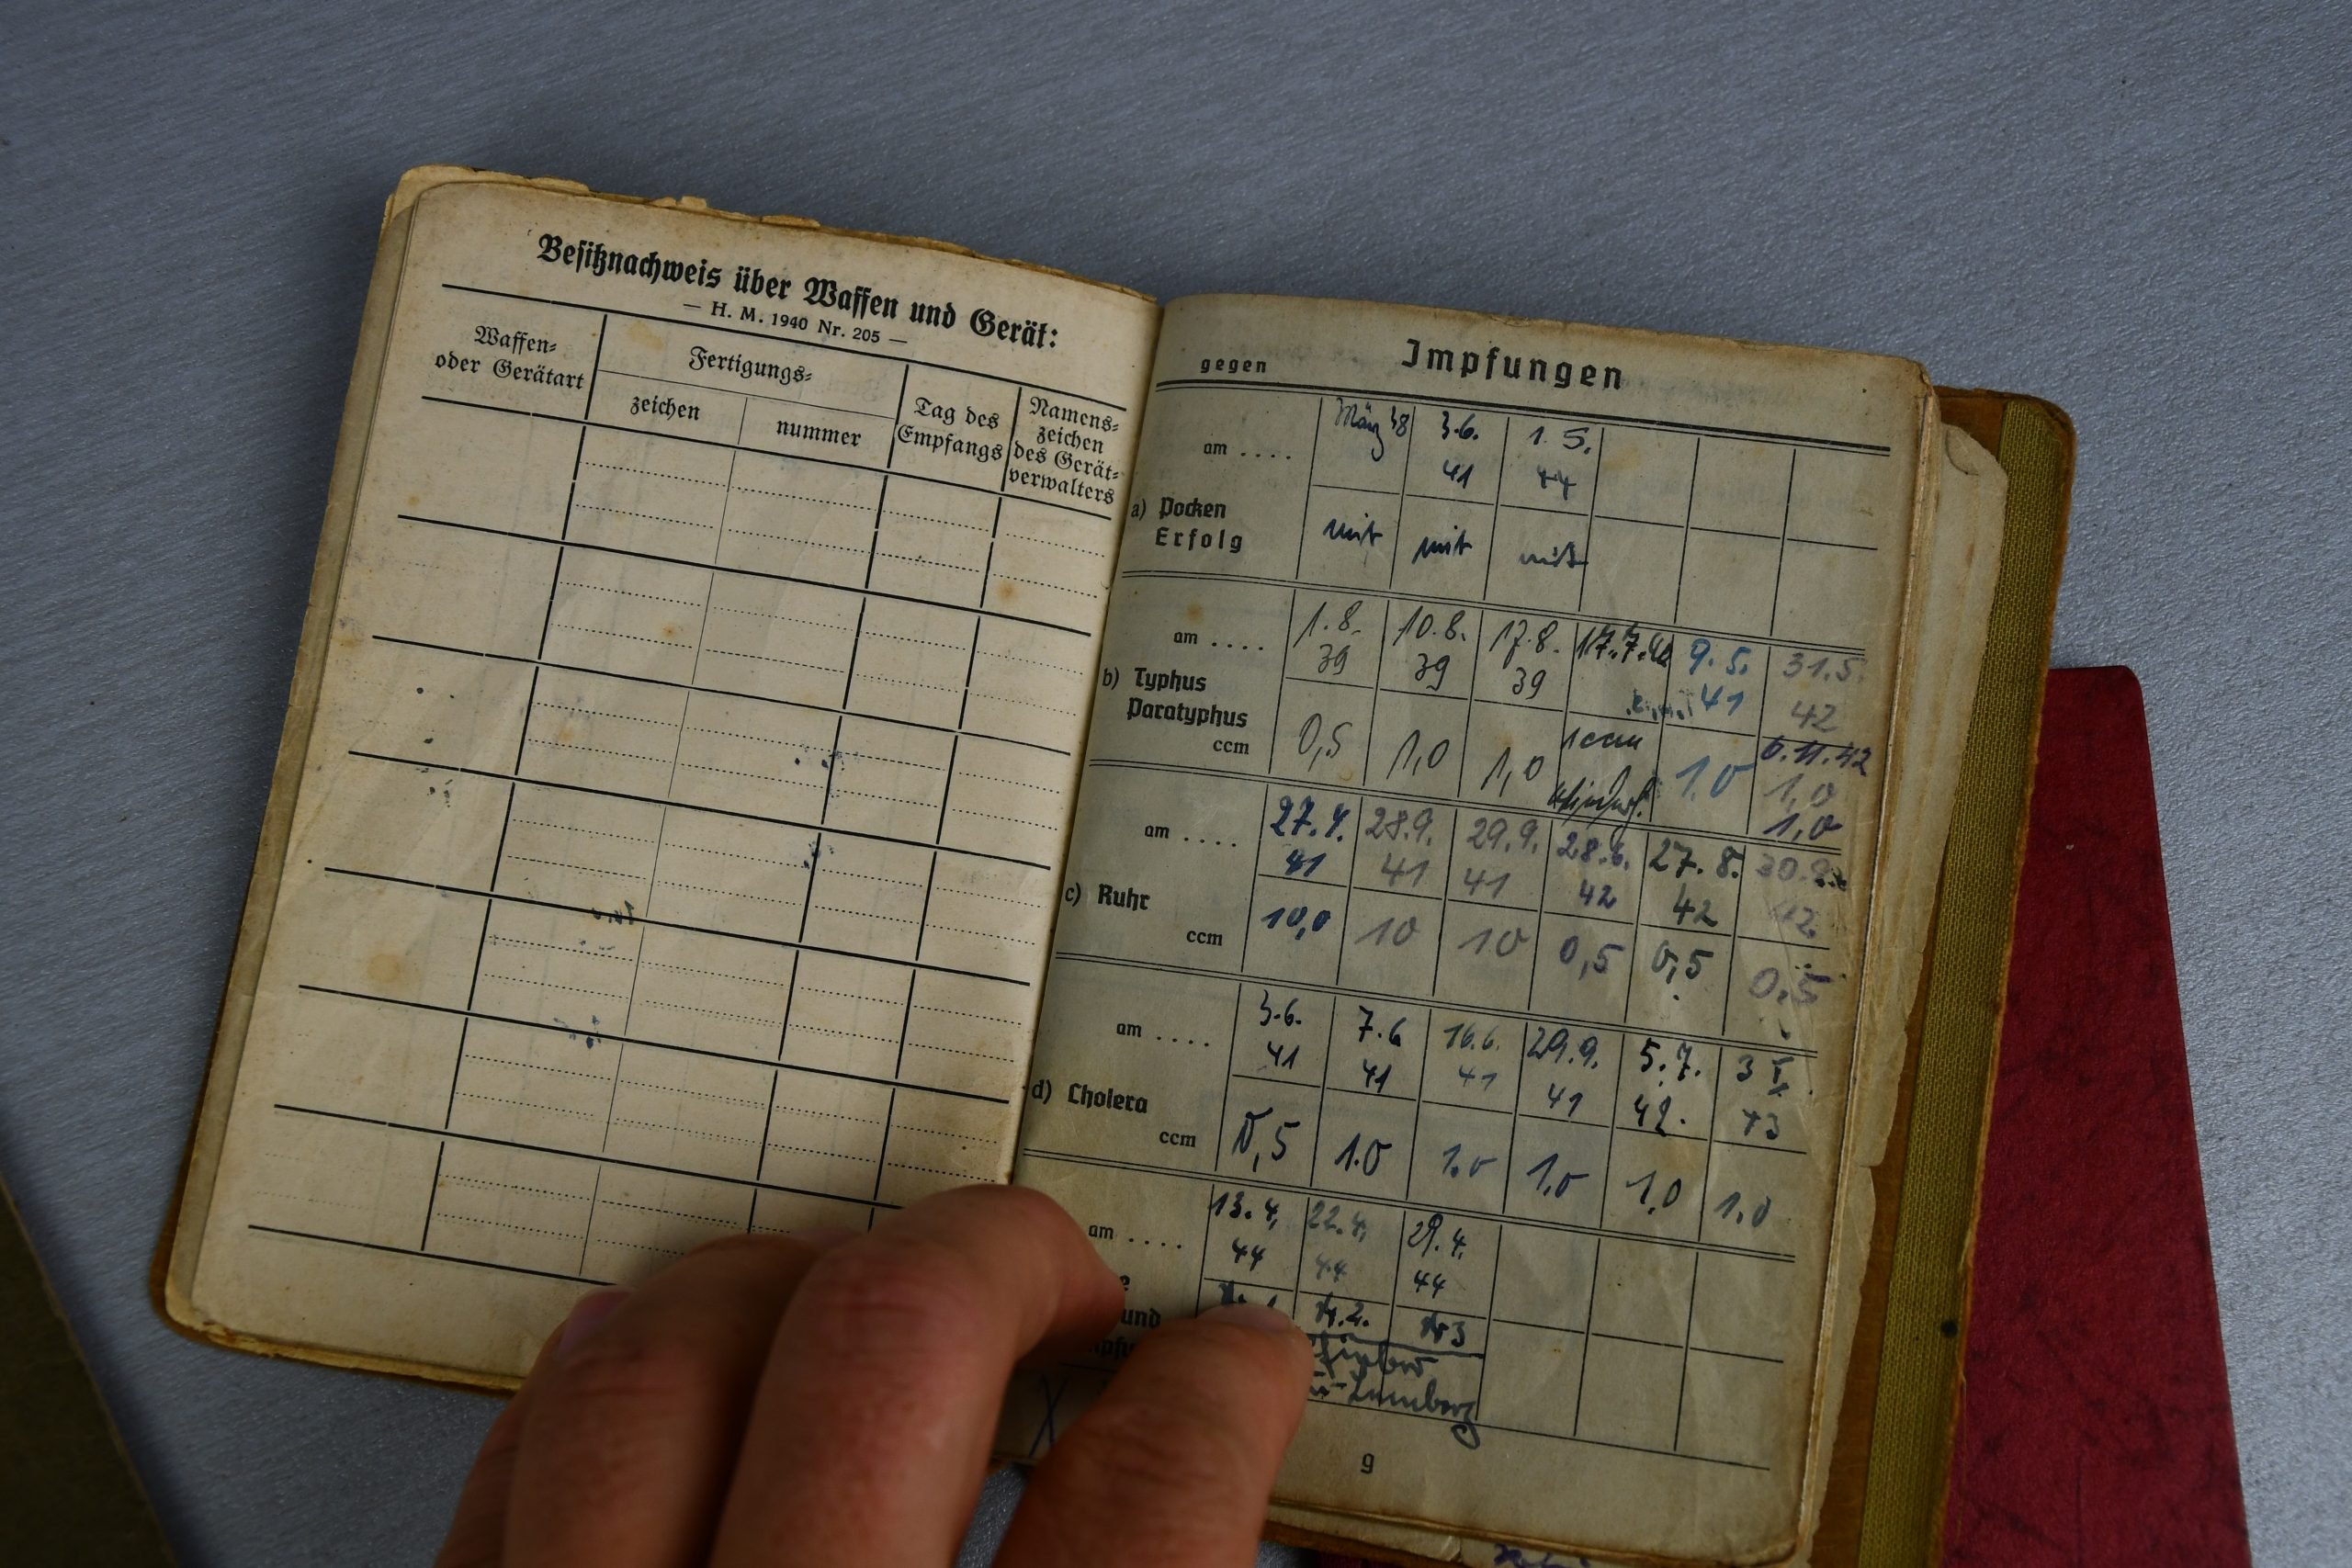 Besitznachweis über Waffen und Gerät:
— H. M. 1940 Nr. 205 —
Waffen-
oder Gerätart
Fertigungs-
zeichen
nummer
Tag des
Empfangs
Namens-
zeichen
des Gerät-
verwalters
gegen
Impfungen
am . . . . März 38 3.6. 1. 5.
41 44
a) Pocken
Erfolg mit mit mit
am . . . . 1.8. 10.8. 17.8. 17.7.40 9.5. 31.5.
39 39 39 41 42
b) Typhus
Paratyphus
ccm 0,5 1,0 1,0 1 ccm 1.0 6.11.42
1,0
1,0
am . . . . 27.4. 28.9. 29.9. 28.6. 27.8. 30.
41 41 41 42 42 42
c) Ruhr
ccm 10,0 10 10 0,5 0,5 0,5
am . . . . 3.6. 7.6 16.6. 29.9. 5.7. 3 X.
41 41 41 41 42. 43
d) Cholera
ccm 0,5 1.0 1.0 1,0 1,0 1.0
am . . . . 13.4. 22.4. 29.4.
44 44 44
und
Nr.2. Nr 3
9